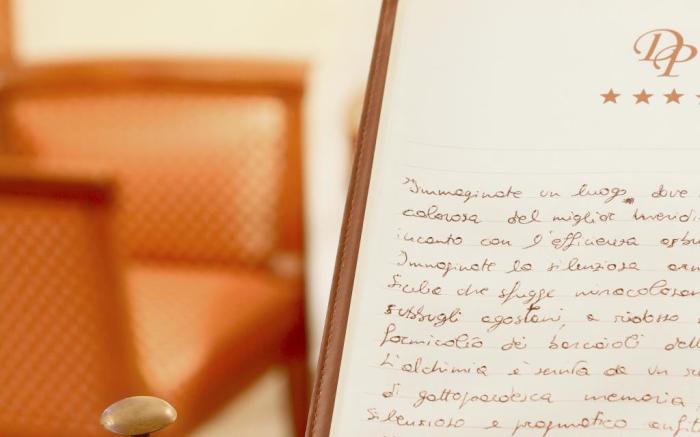 DP
"Immaginate un luogo, dove
calorosa del miglior meridi
incanto con l'efficienza asbu
Immaginate la silenziosa arm
Sicilia che sfugge miracolosam
subbugli agostani, a ridosso
formicolio dei barcaioli dell
L'alchimia è servita da un s
di gattopardesca memoria
silenzioso e pragmatico anfit